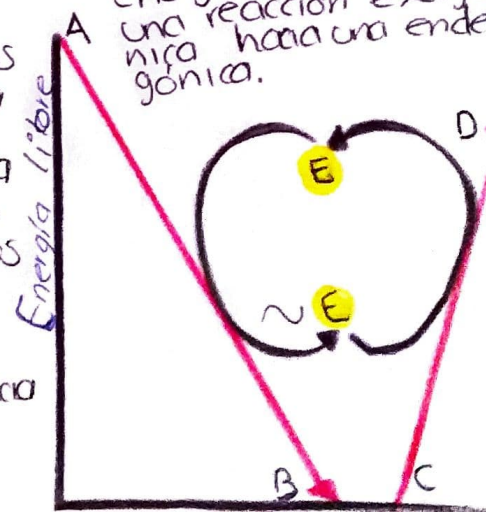 una reacción
nica hacia una ende
gónica.
A
D
Energía libre
E
~E
B
C